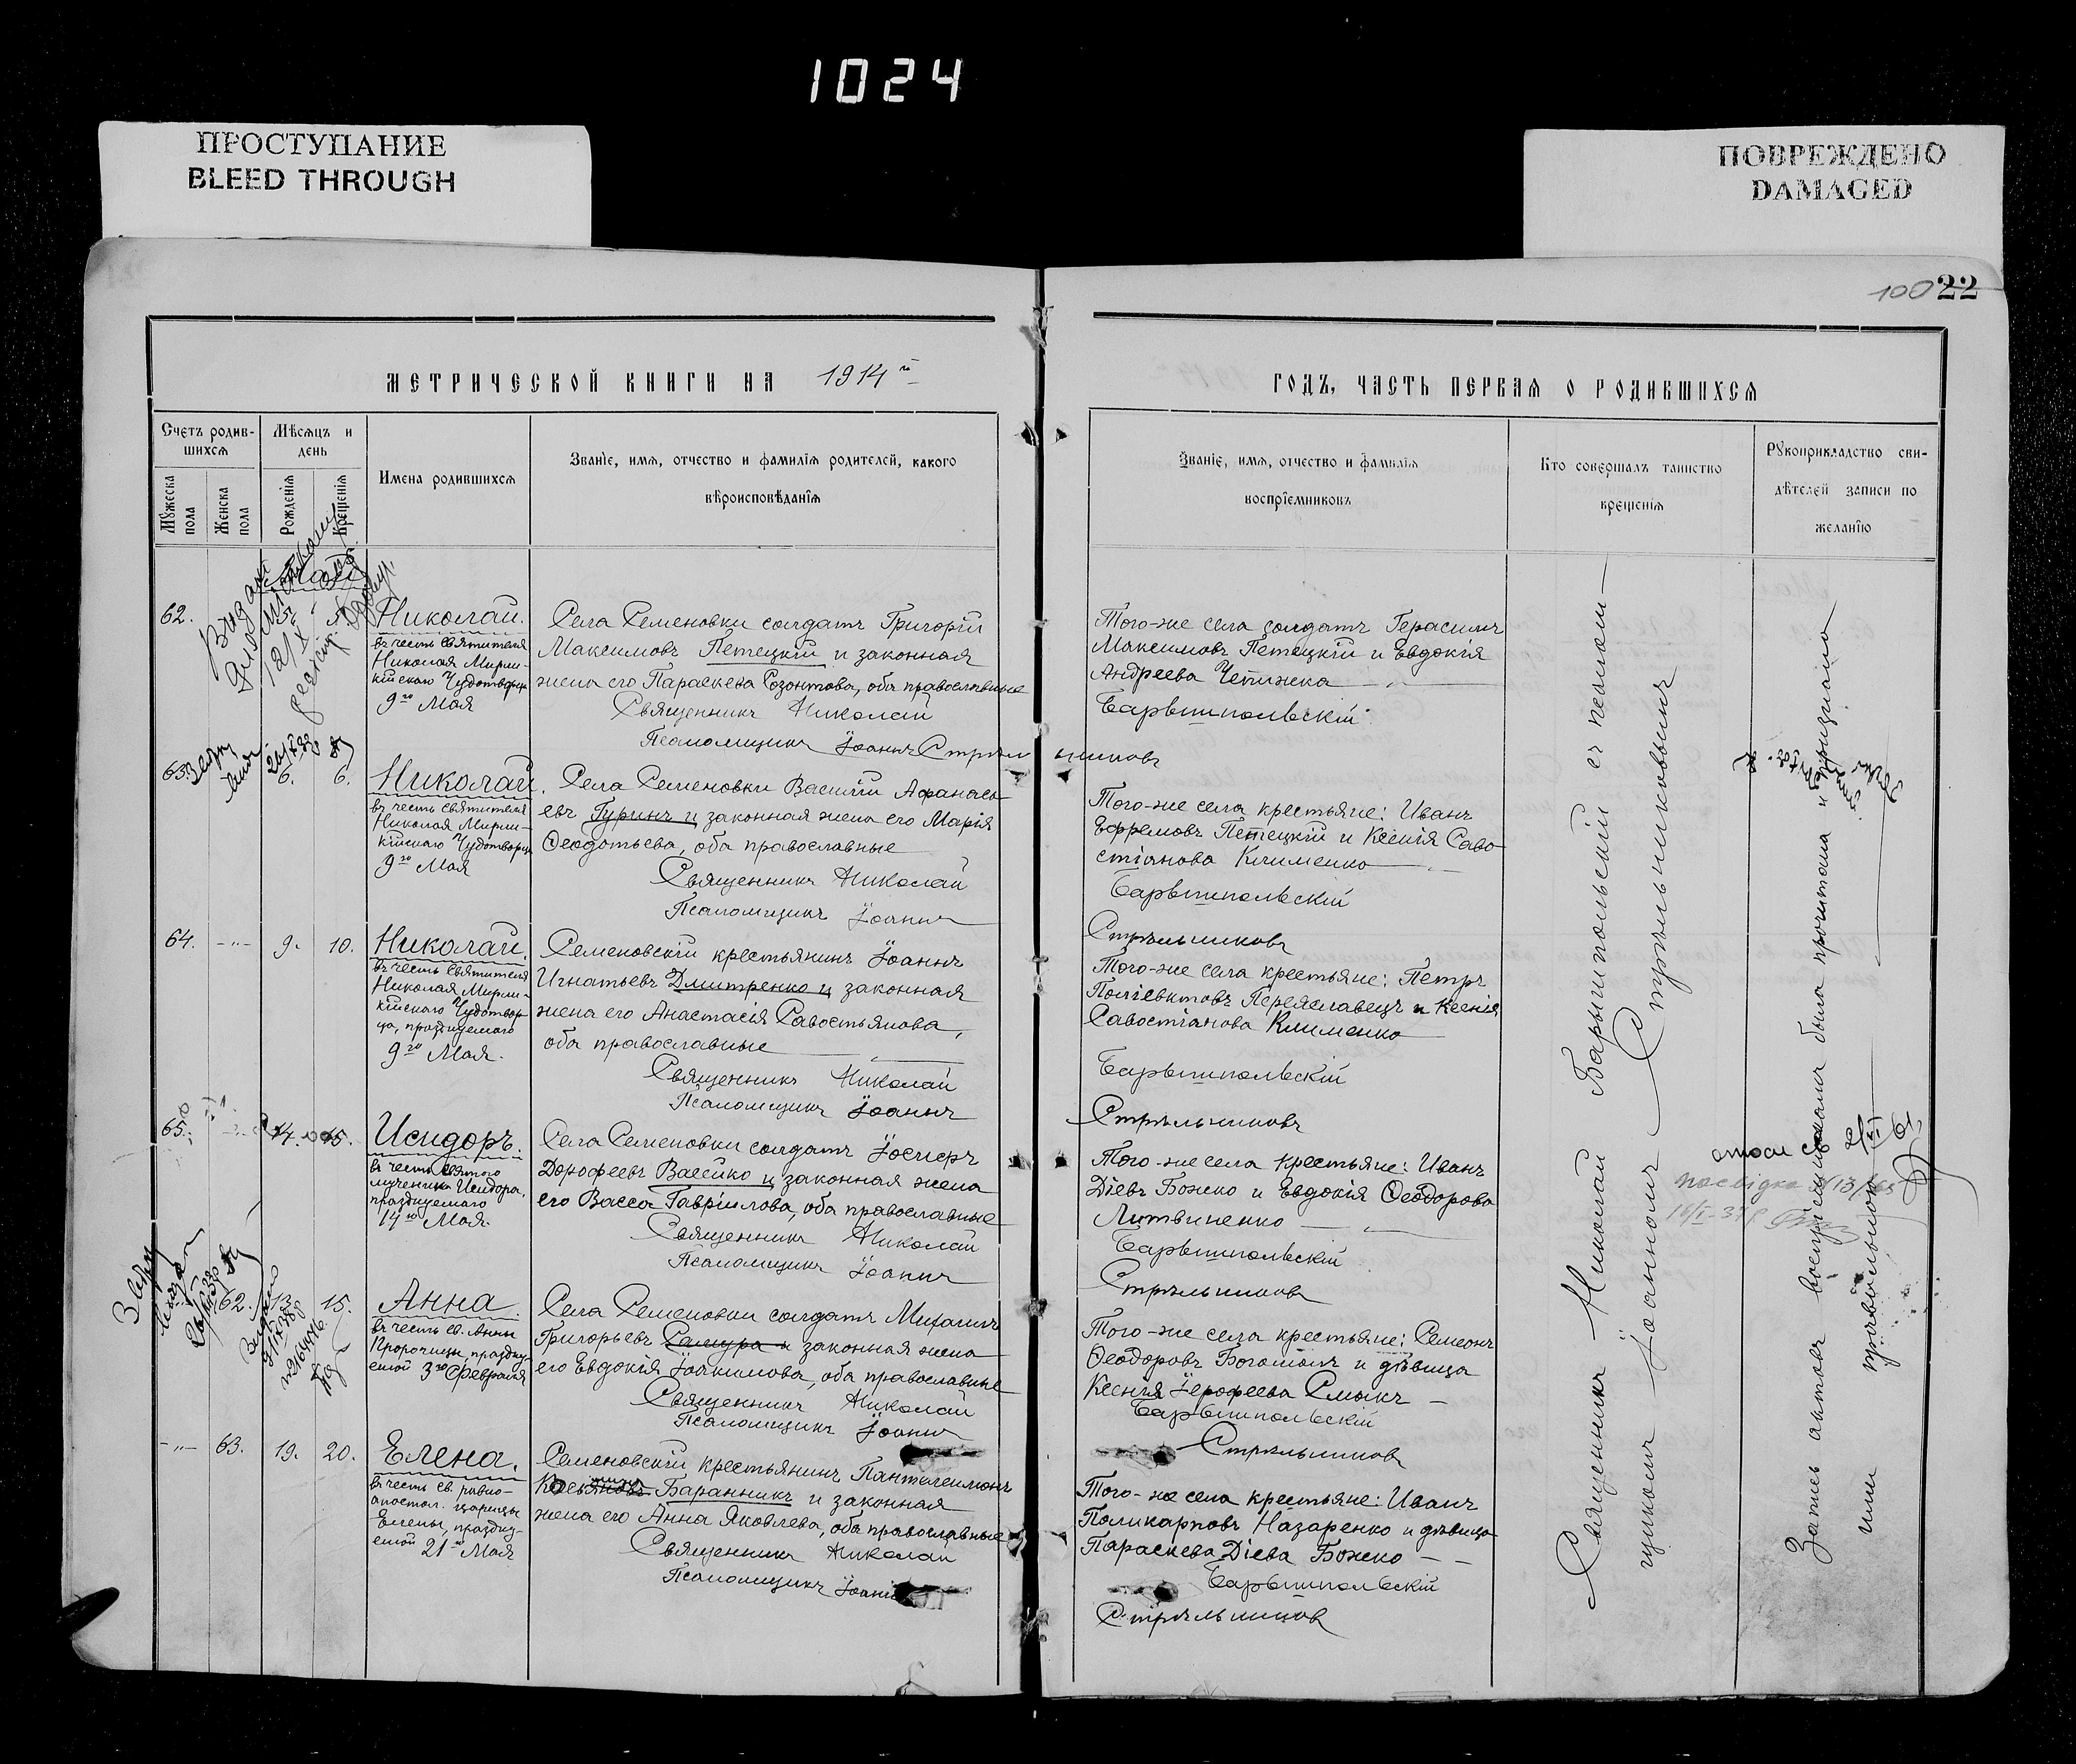 1024
ПРОСТУПАНИЕ
BLEED THROUGH
ПОВРЕЖДЕНО
DAMAGED
100 22
МЕТРИЧЕСКОЙ КНИГИ НА 1914 го
ГОДЪ, ЧАСТЬ ПЕРВАЯ О РОДИВШИХСЯ
Счетъ родив-
шихся
Мужеска пола
Женска пола
Мѣсяцъ и
день
Рожденія
Крещенія
Имена родившихся
Званіе, имя, отчество и фамилія родителей, какого
вѣроисповѣданія
Званіе, имя, отчество и фамилія
воспріемниковъ
Кто совершалъ таинство
крещенія
Рукоприкладство сви-
дѣтелей записи по
желанію
Май
62. 5.
Николай.
въ честь Святителя
Николая Мирли-
кійскаго Чудотворца
9го Мая
Села Семеновки солдатъ Григорій
Максимовъ Петецкій и законная
жена его Параскева Созонтова, оба православные
Священникъ Николай
Псаломщикъ Іоаннъ Стрѣльниковъ
Того-же села солдатъ Герасимъ
Максимовъ Петецкій и Евдокія
Андреева Чепижка
Барышпольскій
63. 6. 6.
Николай.
въ честь Святителя
Николая Мирли-
кійскаго Чудотворца
9го Мая
Села Семеновки Василій Афанась-
евъ Гуринъ и законная жена его Марія
Ѳеодотьева, оба православные
Священникъ Николай
Псаломщикъ Іоаннъ
Того-же села крестьяне: Иванъ
Ефремовъ Петецкій и Ксенія Саво-
стіанова Клименко
Барышпольскій
Стрѣльниковъ
64. -"- 9. 10.
Николай.
въ честь Святителя
Николая Мирли-
кійскаго Чудотвор-
ца, празднуемаго
9го Мая.
Семеновскій крестьянинъ Іоаннъ
Игнатьевъ Дмитренко и законная
жена его Анастасія Савостьянова,
оба православные
Священникъ Николай
Псаломщикъ Іоаннъ
Того-же села крестьяне: Петръ
Поліевктовъ Переяславецъ и Ксенія
Савостіанова Клименко
Барышпольскій
Стрѣльниковъ
65. 14. 15.
Исидоръ.
въ честь Святого
мученика Исидора,
празднуемаго
14го Мая.
Села Семеновки солдатъ Іосифъ
Дорофеевъ Васейко и законная жена
его Васса Гавріилова, оба православные
Священникъ Николай
Псаломщикъ Іоаннъ
Того-же села крестьяне: Иванъ
Діевъ Божко и Евдокія Ѳеодорова
Литвиненко
Барышпольскій
Стрѣльниковъ
62. 13. 15.
Анна.
въ честь св. Анны
Пророчицы, праздну-
емой 3го Февраля
Села Семеновки солдатъ Михаилъ
Григорьевъ Самура и законная жена
его Евдокія Іоакимова, оба православные
Священникъ Николай
Псаломщикъ Іоаннъ
Того-же села крестьяне: Семеонъ
Ѳеодоровъ Богомолъ и дѣвица
Ксенія Іерофеева Смыкъ
Барышпольскій
Стрѣльниковъ
-"- 63. 19. 20.
Елена.
въ честь св. равно-
апостол. царицы
Елены, праздну-
емой 21го Мая
Семеновскій крестьянинъ Пантелеимонъ
Баранникъ и законная
жена его Анна Яковлева, оба православные
Священникъ Николай
Псаломщикъ Іоаннъ
Того-же села крестьяне: Иванъ
Поликарповъ Назаренко и дѣвица
Параскева Діева Божко
Барышпольскій
Стрѣльниковъ
Священникъ Николай Барышпольскій съ псалом-
щикомъ Іоанномъ Стрѣльниковымъ
Запись актовъ воспріемникамъ была прочитана и признана
ими правильной